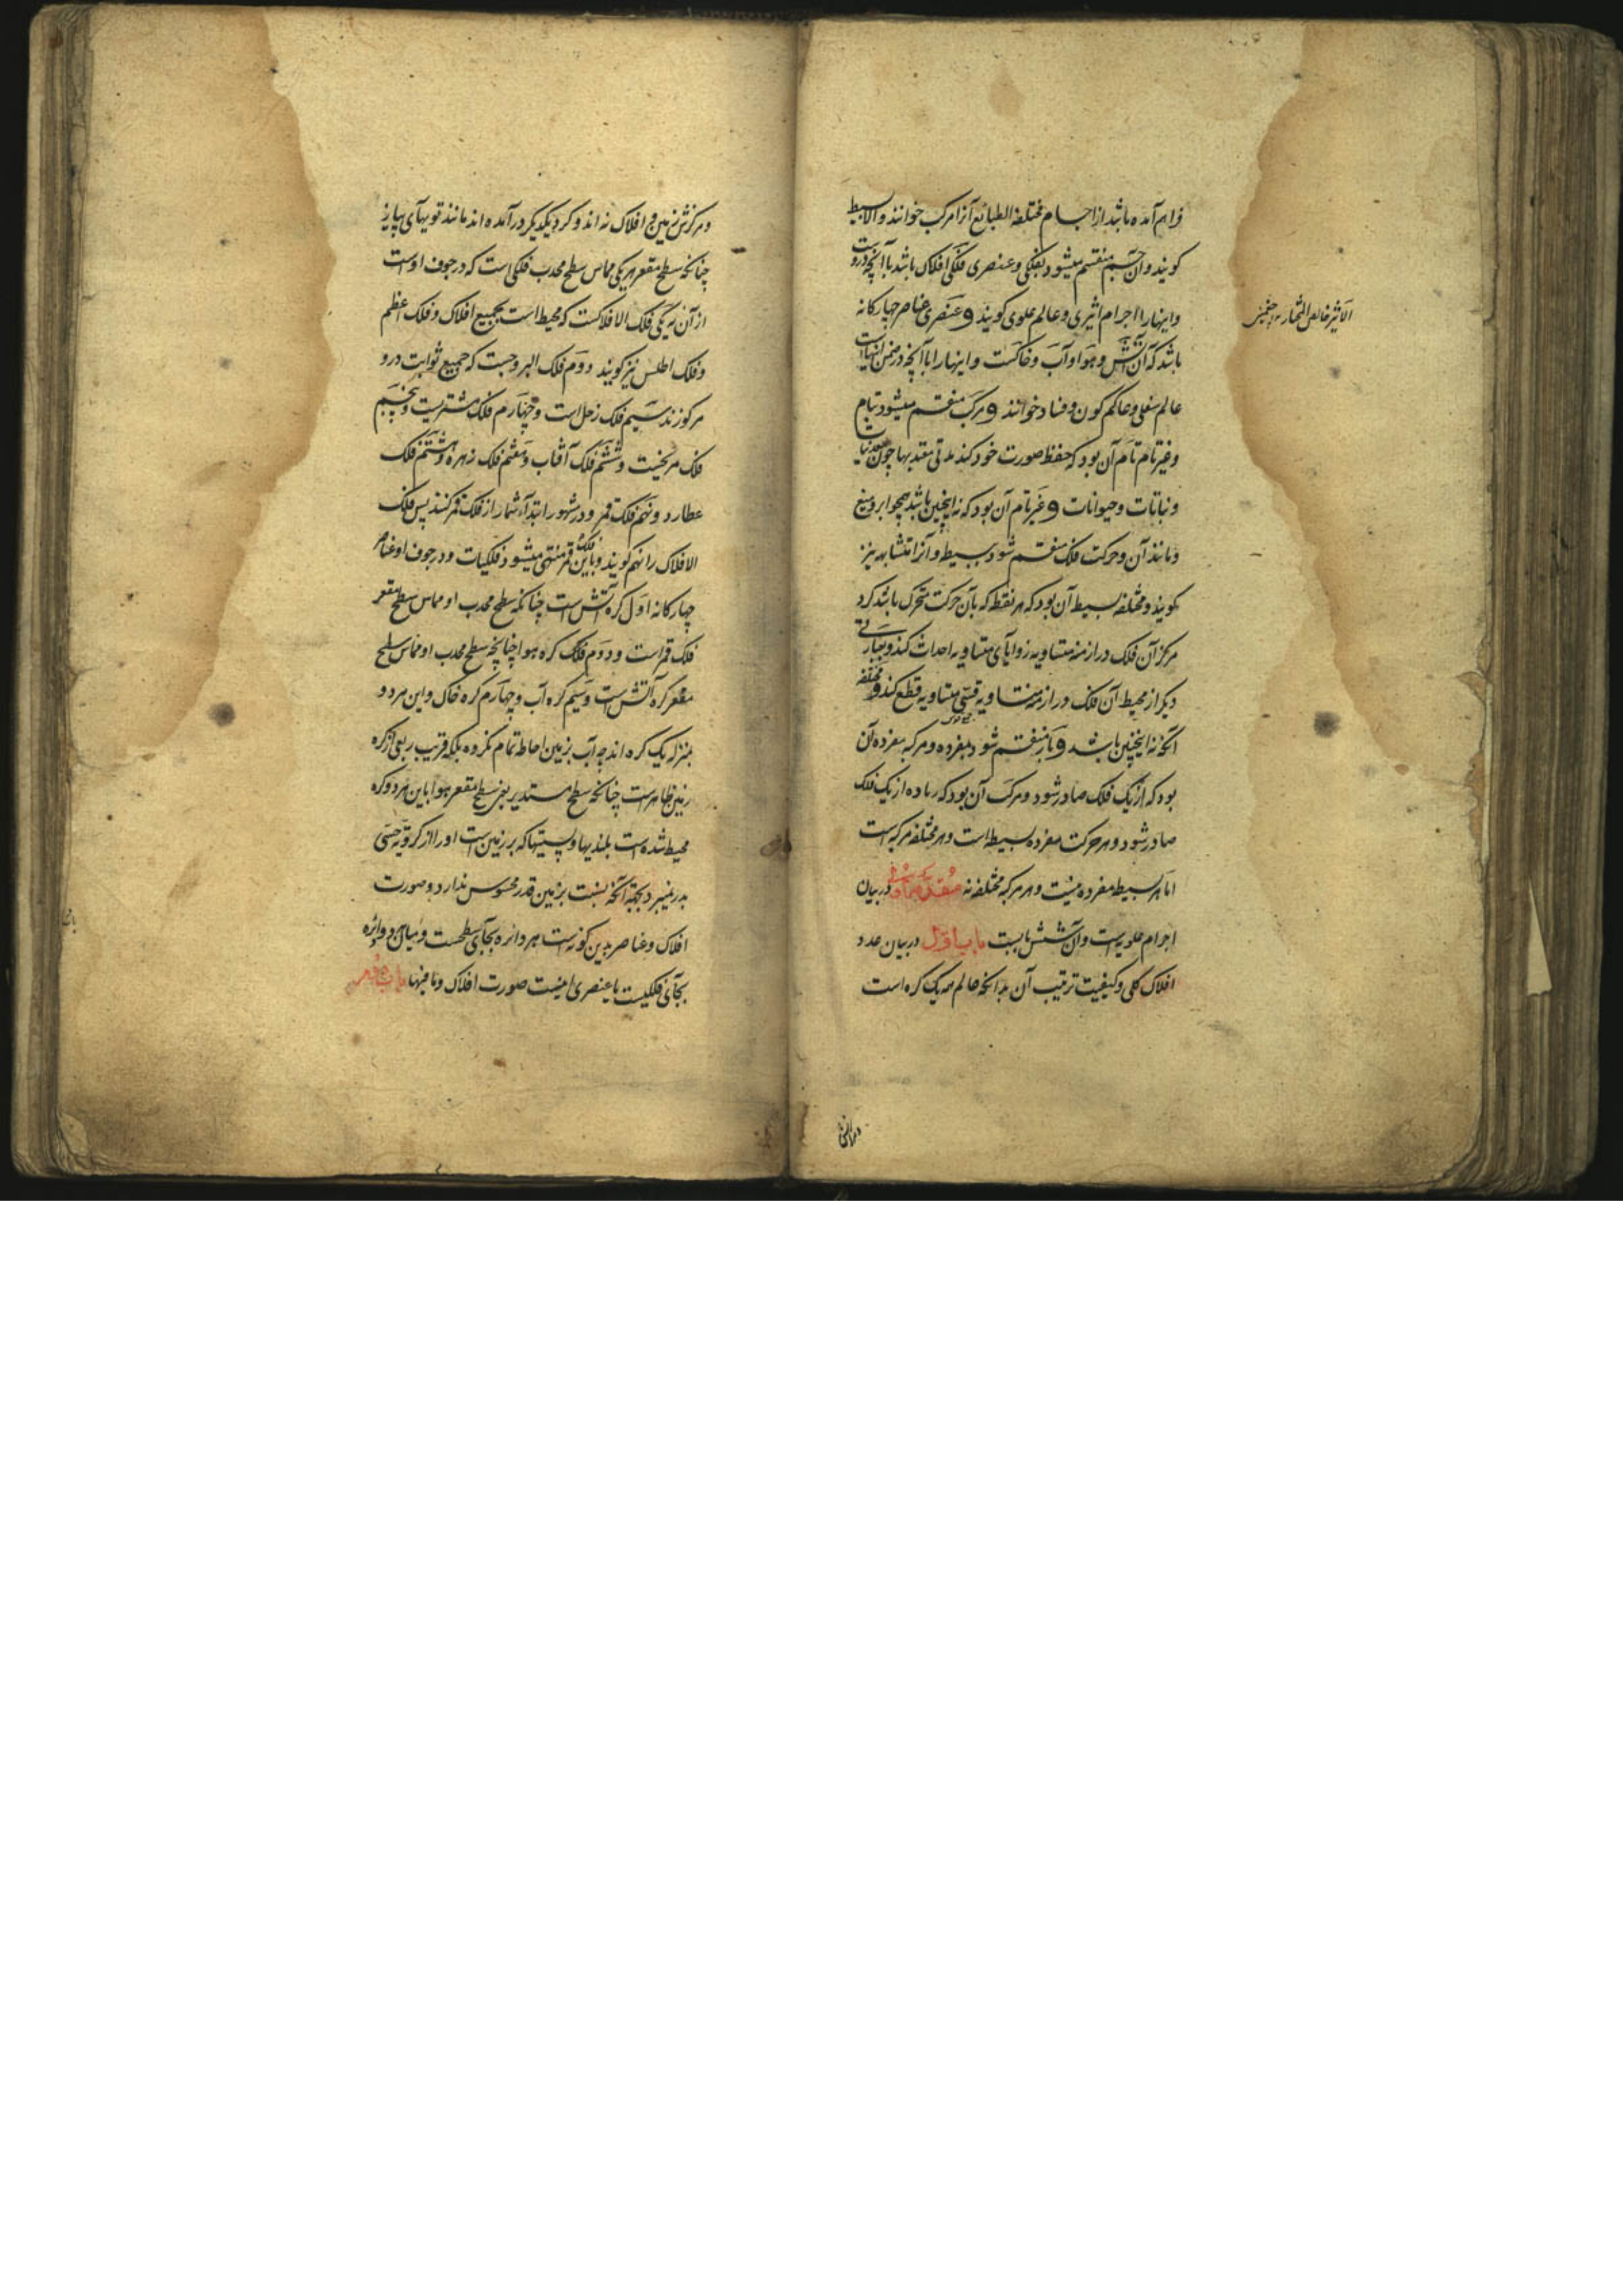 فراهم آمده باشد از اجسام مختلفة الطبائع آنرا مرکب خوانند و الا بسیط
کویند و آن جسم منقسم میشود بفلکی و عنصری فلکی افلاک باشد با آنچه دروست
و اینها را اجرام اثیری و عالم علوی کویند و عنصری عناصر چهارکانه
باشد که آن آتش و هوا و آب و خاکست و اینها را با آنچه در ضمن اینهاست
عالم سفلی و عالم کون و فساد خوانند و مرکب منقسم میشود بتام
و غیر تام تام آن بود که حفظ صورت خود کند مدتی معتد بها چون معدنیات
و نباتات و حیوانات و غیر تام آن بود که نه اینچنین باشد همچو ابر و میغ
و مانند آن و حرکت فلک منقسم شود ببسیط و آنرا متشابه نیز
کویند و مختلفه بسیط آن بود که هر نقطه که بآن حرکت متحرک باشد کرد
مرکز آن فلک در ازمنه متساویه زوایای متساویه احداث کند و بعبارتی
دیکر از محیط آن فلک در ازمنه متساویه قسی متساویه قطع کند و مختلفه
آنچه نه اینچنین باشد و باز منقسم شود بمفرده و مرکبه مفرده آن
بود که از یک فلک صادر شود و مرکب آن بود که زیاده از یک فلک
صادر شود و هر حرکت مفرده بسیط است و هر مختلفه مرکبه است
اما هر بسیط مفرده نیست و هر مرکبه مختلفه نه در بیان
اجرام علویه است و آن شش بابست باب اول در بیان عدد
افلاک کلی و کیفیت ترتیب آن بدانکه عالم همه یک کره است
الاثیر خالص البخار
و مرکزش زمین و افلاک نه اند و کرد یکدیکر در آمده اند مانند تویهای پیاز
چنانکه سطح مقعر هر یکی مماس سطح محدب فلکی است که در جوف اوست
از آن نه یکی فلک الافلاکست که محیط است بجمیع افلاک و فلک اعظم
و فلک اطلس نیز کویند دوم فلک البروجست که جمیع ثوابت درو
مرکوزند سیم فلک زحل است و چهارم فلک مشتریست و پنجم
فلک مریخست و ششم فلک آفتاب و هفتم فلک زهره و هشتم فلک
عطارد و نهم فلک قمر و در مشهور ابتداء شمار از فلک قمر کنند پس فلک
الافلاک را نهم کویند و باین فلک قمر منتهی میشود فلکیات و در جوف او عناصر
چهارکانه اول کره آتش است چنانکه سطح محدب او مماس سطح مقعر
فلک قمر است و دوم فلک کره هوا چنانچه سطح محدب او مماس سطح
مقعر کره آتش است و سیم کره آب و چهارم کره خاک و این هر دو
بمنزله یک کره اند چه آب بزمین احاطه تمام نکرده بلکه قریب ربعی از کره
زمین ظاهر است چنانکه سطح مستدیر یعنی سطح مقعر هوا باین هر دو کره
محیط شده است بلندیها و پستیها که بر زمین است او را از کرویة حسی
بدر نمیبرد بجهة آنکه نسبت بزمین قدر محسوس ندارد و صورت
افلاک و عناصر بدین کونه است هر دائره بجای سطحست و میان هر دو دائره
بجای فلکیست یا عنصری اینست صورت افلاک و ما فیها باب دوم